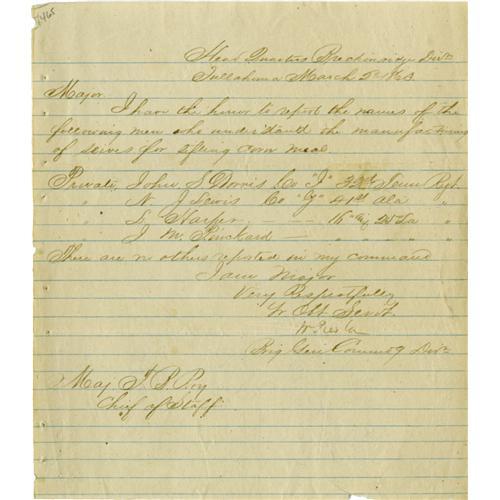 1465
Head Quarters Breckinridge Divn
Tullahoma March 2d 1863
Major
I have the honor to report the names of the
following men who understand the manufacturing
of seives for sifting corn meal
Private, John S Norris Co "I" 32nd Tenn Regt.
" N J Lewis Co "G" 41st Ala "
" S Harper — — 16" & 25" La "
" J M. Pinckard — " " " " "
There are no others reported in my command
I am Major
Very Respectfully
Yr Obt Servt.
Brig Gen Commdg Divn
Maj T. B. Roy
Chief of Staff